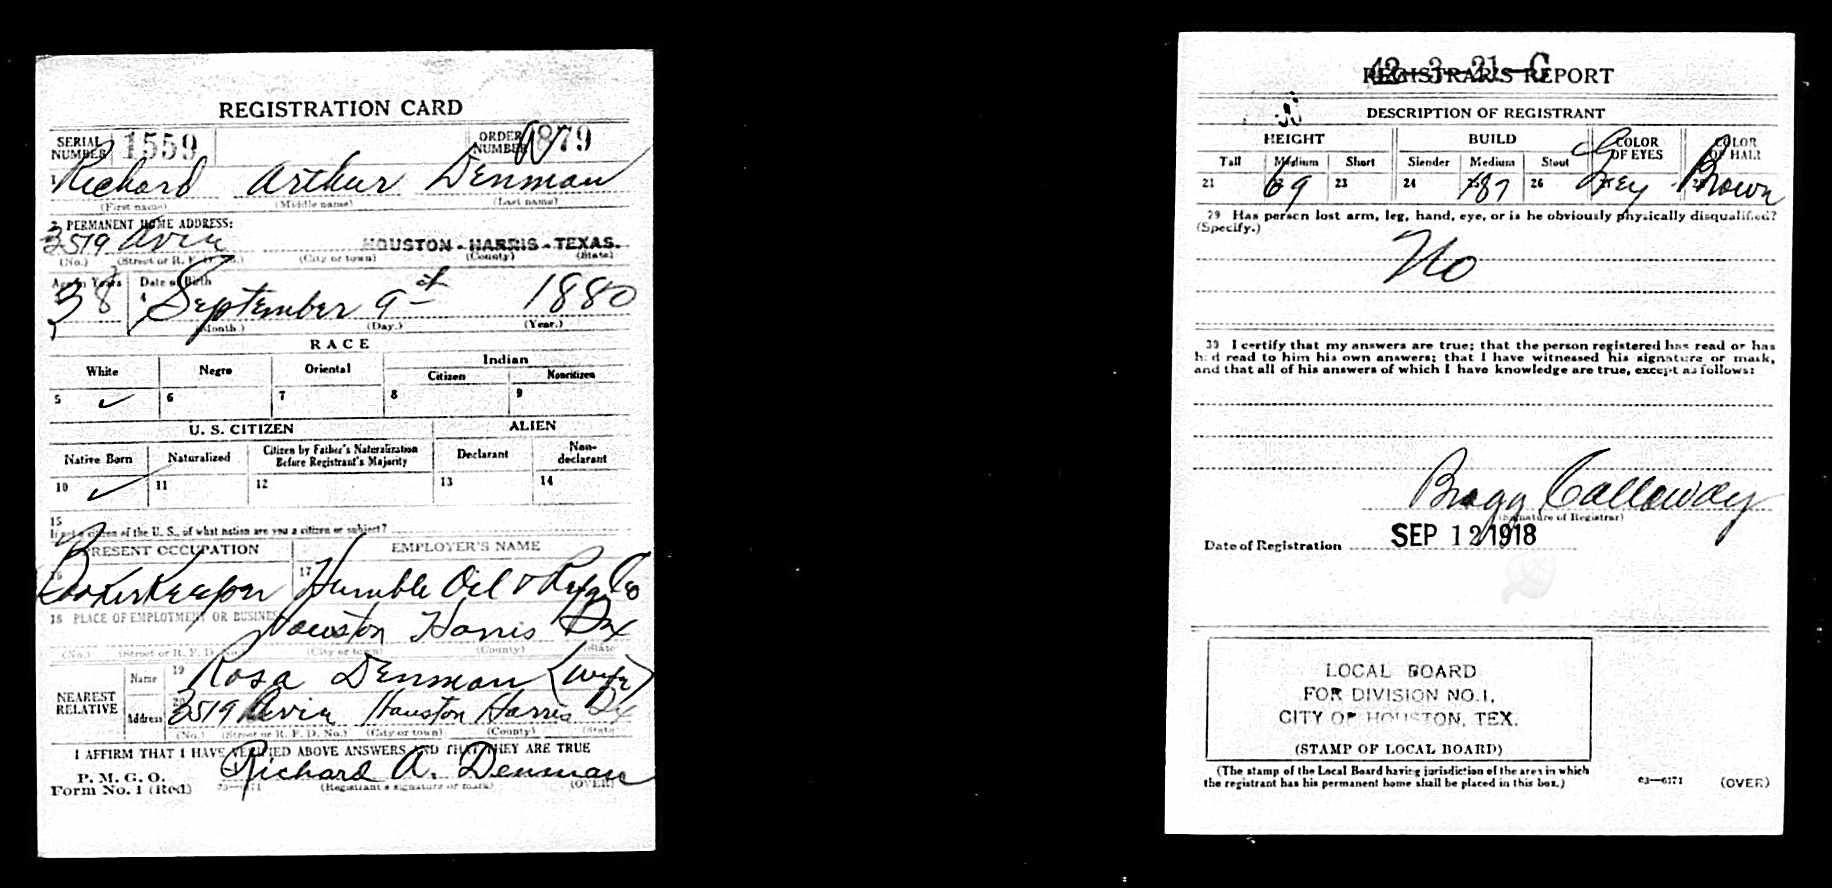 REGISTRATION CARD
SERIAL NUMBER 1559 ORDER NUMBER 879
Richard Arthur Denman
(First name) (Middle name) (Last name)
PERMANENT HOME ADDRESS:
3519 HOUSTON - HARRIS - TEXAS.
(No.) (Street or R. F. D. No.) (City or town) (County) (State)
Age in Years Date of Birth
38 4 September 9 1880
(Month.) (Day.) (Year.)
RACE
White Negro Oriental Indian
Citizen Noncitizen
5 ✓ 6 7 8 9
U. S. CITIZEN ALIEN
Native Born Naturalized Citizen by Father's Naturalization Before Registrant's Majority Declarant Non-declarant
10 ✓ 11 12 13 14
15
If not a citizen of the U. S., of what nation are you a citizen or subject?
PRESENT OCCUPATION EMPLOYER'S NAME
16 BookerKeeper 17 Humble Oil & Co
18 PLACE OF EMPLOYMENT OR BUSINESS
Houston Harris Tex
(No.) (Street or R. F. D. No.) (City or town) (County) (State)
NEAREST RELATIVE Name 19 Rosa Denman (wife)
Address 20 3519 Houston Harris Tx
(No.) (Street or R. F. D. No.) (City or town) (County) (State)
I AFFIRM THAT I HAVE VERIFIED ABOVE ANSWERS AND THAT THEY ARE TRUE
P. M. G. O.
Form No. 1 (Red) 03—6171 Richard A. Denman
(Registrant's signature or mark) (OVER)
42-3-21-C
REGISTRAR'S REPORT
DESCRIPTION OF REGISTRANT
HEIGHT BUILD COLOR OF EYES COLOR OF HAIR
Tall Medium Short Slender Medium Stout
21 69 23 24 187 26 Grey Brown
29 Has person lost arm, leg, hand, eye, or is he obviously physically disqualified?
(Specify.)
No
30 I certify that my answers are true; that the person registered has read or has
had read to him his own answers; that I have witnessed his signature or mark,
and that all of his answers of which I have knowledge are true, except as follows:
Bragg Calloway
(Signature of Registrar)
Date of Registration SEP 12 1918
LOCAL BOARD
FOR DIVISION NO.1,
CITY OF HOUSTON, TEX.
(STAMP OF LOCAL BOARD)
(The stamp of the Local Board having jurisdiction of the area in which
the registrant has his permanent home shall be placed in this box.)
03—6171 (OVER)